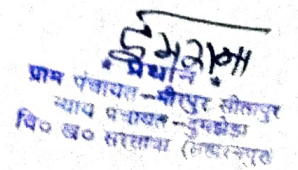 इमराना
* प्रधान *
ग्राम पंचायत-मीरपुर सीतापुर
न्याय पंचायत-दुमझेड़ा
वि० ख० सरसावा (सहारनपुर)